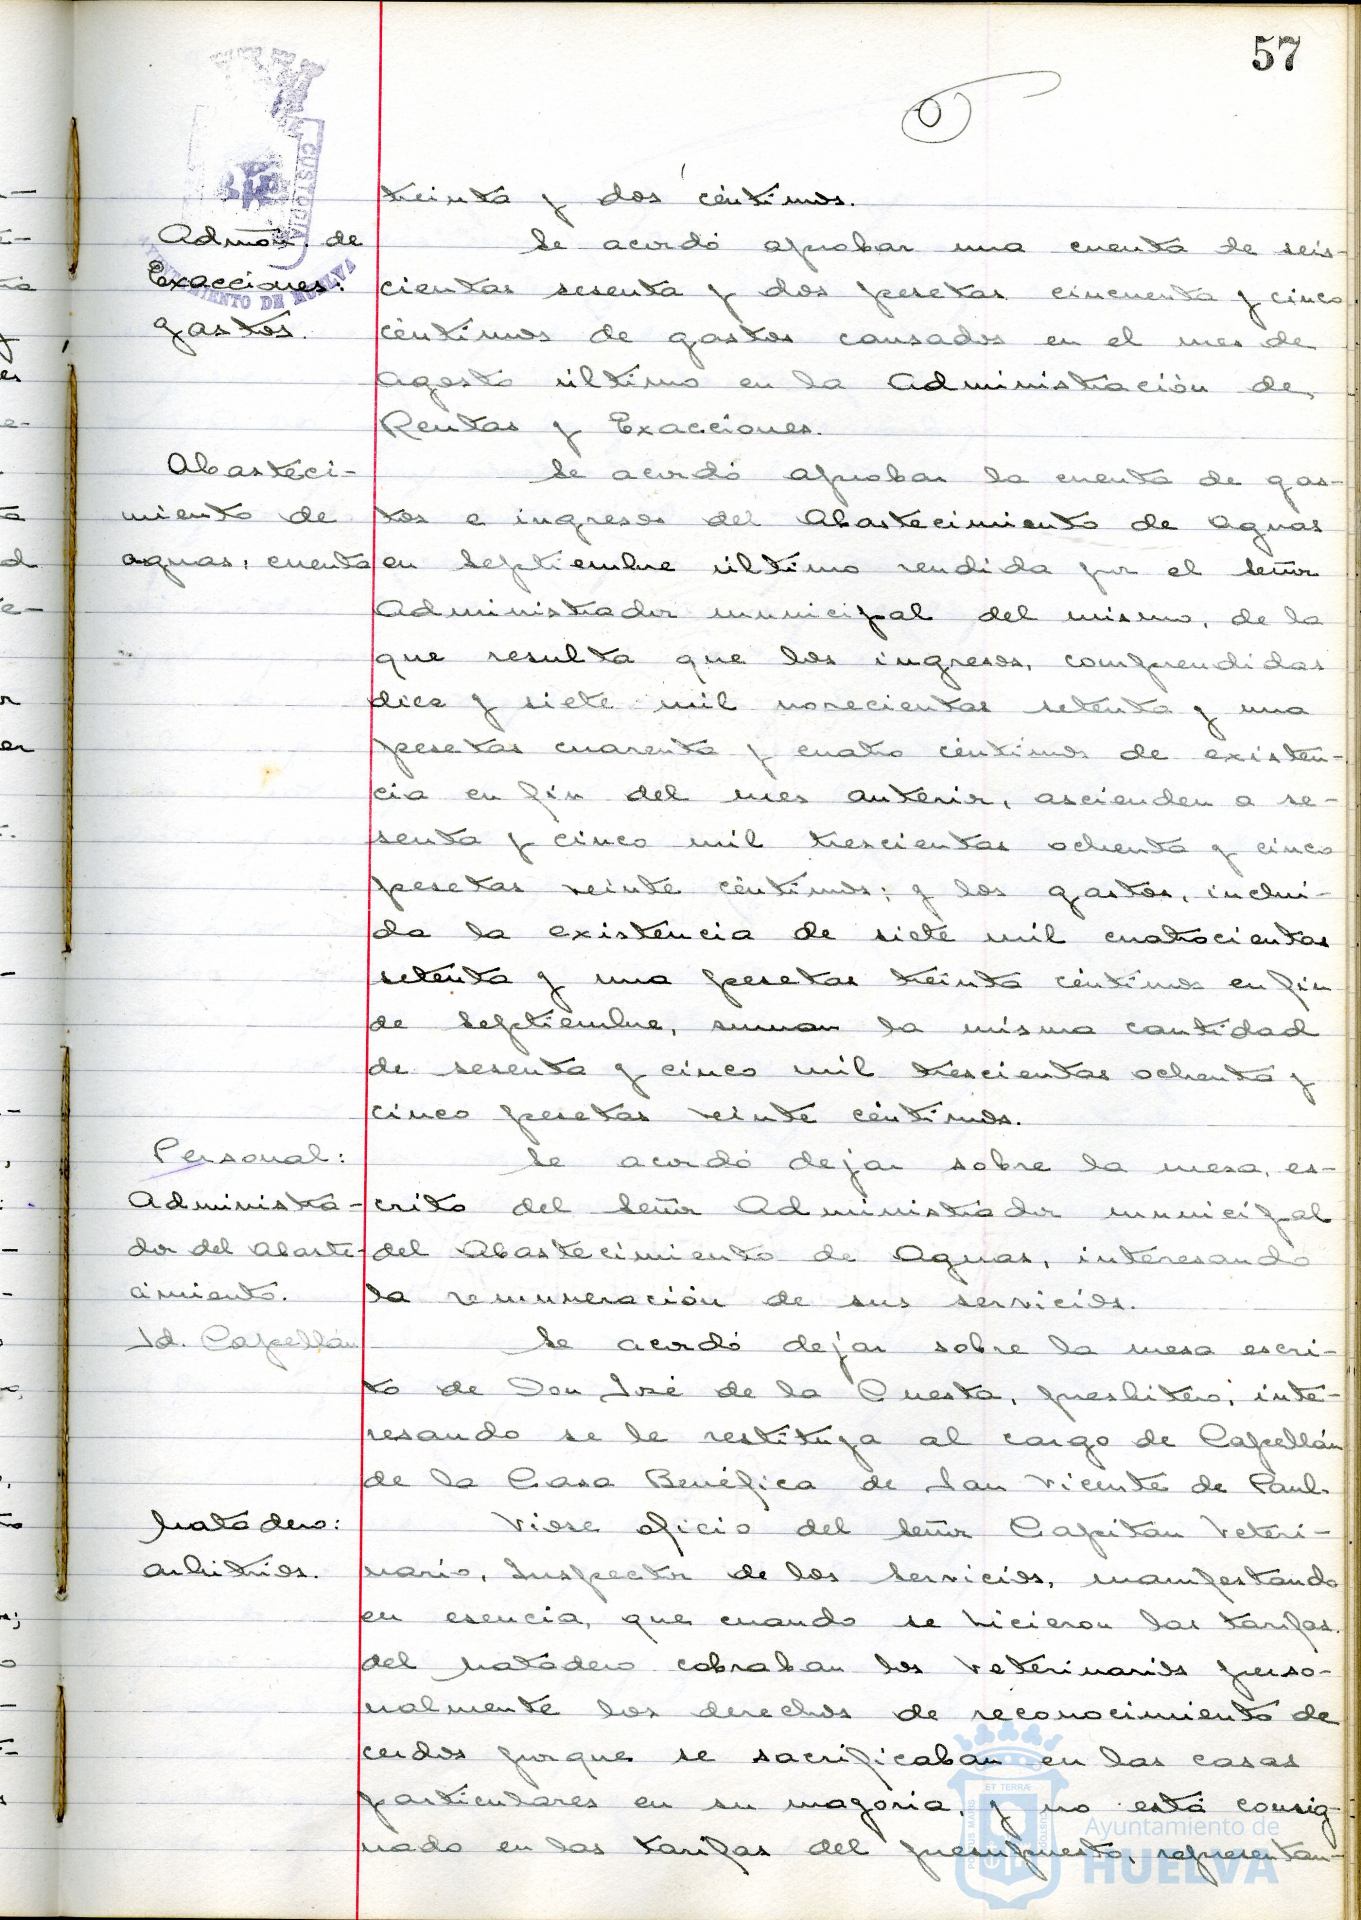 57
treinta y dos céntimos.
Admón. de
Exacciones:
gastos.
Se acordó aprobar una cuenta de seis-
cientas sesenta y dos pesetas cincuenta y cinco
céntimos de gastos causados en el mes de
Agosto último en la Administración de
Rentas y Exacciones.
Abasteci-
miento de
aguas: cuenta
Se acordó aprobar la cuenta de gas-
tos e ingresos del Abastecimiento de Aguas
en Septiembre último rendida por el señor
Administrador municipal del mismo, de la
que resulta que los ingresos, comprendidas
diez y siete mil novecientas setenta y una
pesetas cuarenta y cuatro céntimos de existen-
cia en fin del mes anterior, ascienden a se-
senta y cinco mil trescientas ochenta y cinco
pesetas veinte céntimos; y los gastos, inclui-
da la existencia de siete mil cuatrocientas
setenta y una pesetas treinta céntimos en fin
de Septiembre, suman la misma cantidad
de sesenta y cinco mil trescientas ochenta y
cinco pesetas veinte céntimos.
Personal:
Administra-
dor del Abaste-
cimiento.
Se acordó dejar sobre la mesa, es-
crito del Señor Administrador municipal
del Abastecimiento de Aguas, interesando
la remuneración de sus servicios.
Id. Capellán
Se acordó dejar sobre la mesa escri-
to de Don José de la Cuesta, presbítero, inte-
resando se le restituya al cargo de Capellán
de la Casa Benéfica de San Vicente de Paul.
Matadero:
arbitrios.
Viose oficio del Señor Capitán Veteri-
nario, Inspector de los Servicios, manifestando
en esencia, que cuando se hicieron las tarifas
del Matadero cobraban los Veterinarios perso-
nalmente los derechos de reconocimiento de
cerdos porque se sacrificaban en las casas
particulares en su mayoría, y no está consig-
nado en las tarifas del presupuesto, representan-
CUSTODIA
AYUNTAMIENTO DE HUELVA
PORTUS MARIS
ET TERRÆ
CUSTODIA
Ayuntamiento de
HUELVA